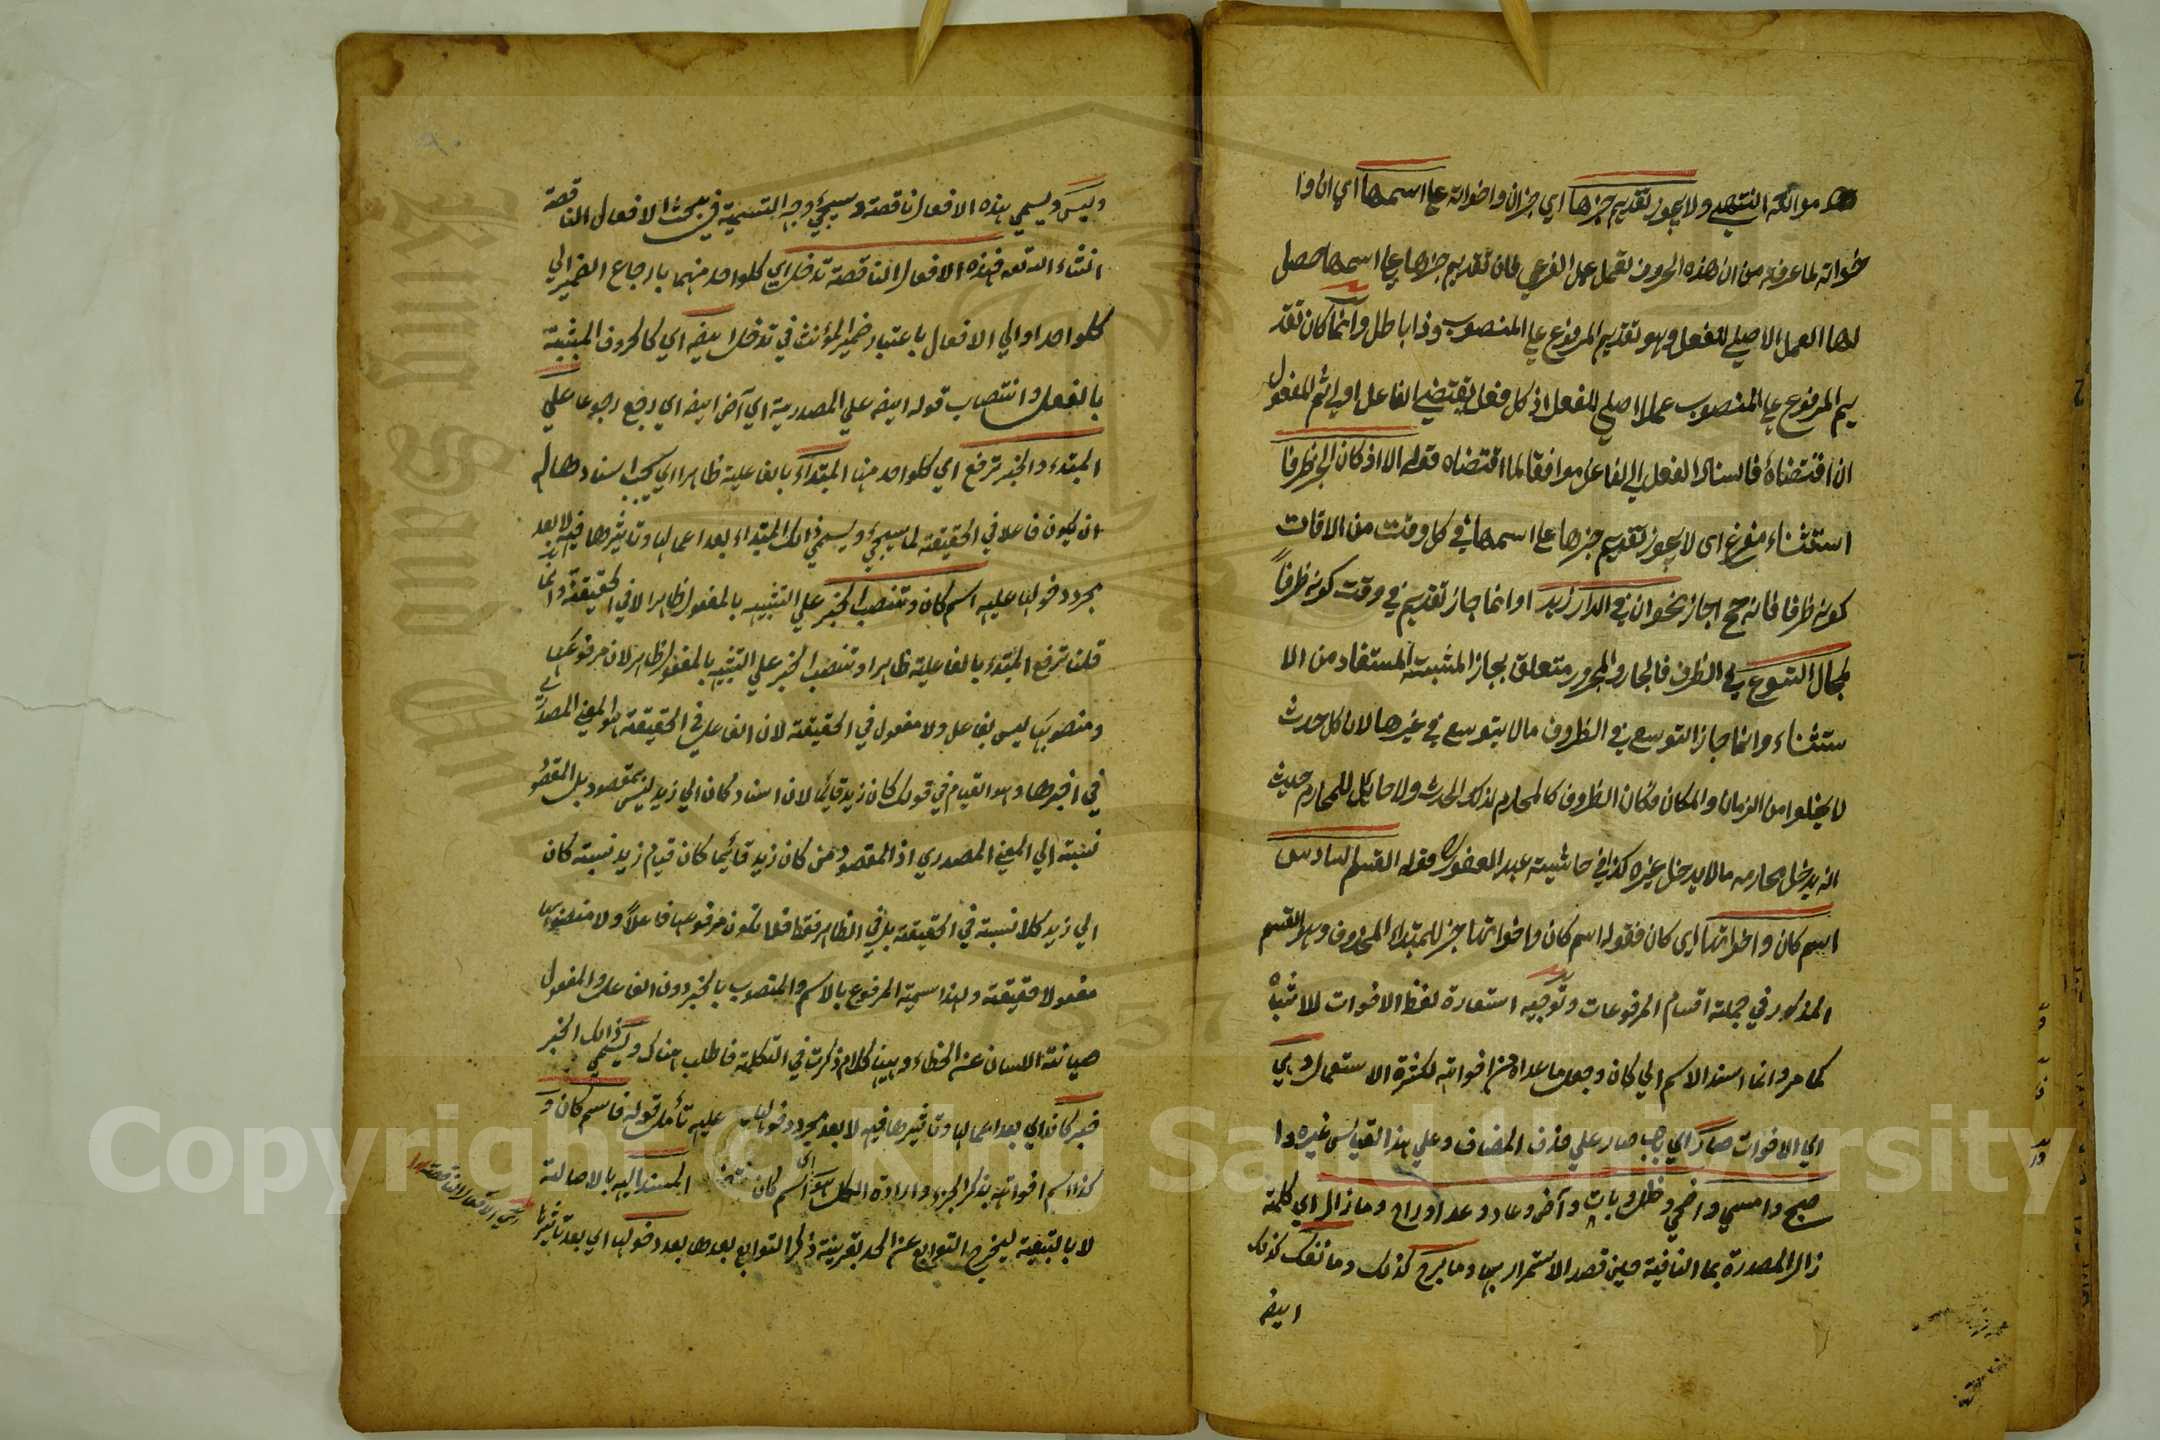 ولا يجوز تقديم خبرها اي خبر ان واخواته على اسمها اي ان وا
خواته لما عرفت من ان هذه الحروف تعمل عمل الفرعي فان تقديم خبرها على اسمها حصل
لها العمل الاصلي للفعل وهو تقديم المرفوع على المنصوب وذا باطل وانما كان تقد
يم المرفوع على المنصوب عملا اصلي للفعل اذ كل فعل يقتضي الفاعل اولا ثم المفعول
ان اقتضاه فاسناد الفعل الى الفاعل موافقا لما اقتضاه قوله الا اذ كان الخبر ظرفا
استثناء مفرغ اى لا يجوز تقديم خبرها على اسمها في كل وقت من الاقات
كونه ظرفا فانه ح اجاز نحو ان في الدار زيد اوانما جاز تقديم في وقت كونه ظرفاً
لمجال التوسع في الظرف فالجار والمجرور متعلق بجاز المثبتة المستفاد من الا
ستثناء وانما جاز التوسع في الظروف مالا يتوسع في غيرها لان كل حدث
لا يخلوا من الزمان والمكان فكان الظروف كالمحارم لذلك الحدث ولا حائل للمحارم حيث
انه يدخل محارمه مالا يدخل غيره كذا في حاشية عبد الغفور قوله القسم السادس
اسم كان واخواتها اى كان فقوله اسم كان واخواتها خبر للمبتداء المحذوف وهو القسم
المذكور في جملة اقسام المرفوعات وتوجيه استعارة لفظ الاخوات للاشباه
كما مر وانما اسند الاسم الي كان وجعل ما عداه من اخواته لكثرة الاستعمال وهي
اي الاخوات صار اي باب صار علي حذف المضاف وعلي هذا القياس غيره وا
صبح وامسي واضحي وظل وبات وآض وعاد وغدا وراح وما زال اي كلمة
زال المصدرة بما النافية حين قصد الاستمرار بها وما برح كذلك وما انفك كذلك
ايضه
وليس ويسمي هذه الافعال ناقصة وسيجيء وجه التسمية في بحث الافعال الناقصة
انشاء الله تعه فهذه الافعال الناقصة تدخل اي كلواحد منهما بارجاع الضمير الي
كلواحد او الي الافعال باعتبار ضمير المؤنث في تدخل ايضه اي كالحروف المشبهة
بالفعل وانتصاب قوله ايضه علي المصدرية اي آض ايضه اي رجع رجوعا علي
المبتدء والخبر ترفع اي كلواحد منها المبتداء بالفاعلية ظاهرا اي بحسب اسنادها له
ان يكون فاعلا في الحقيقة لما سيجيء ويسمي ذالك المبتداء بعد اعمالها وتاثيرها فيه لا بعد
مجرد دخولها عليه اسم كان وتنصب الخبر علي التشبيه بالمفعول ظاهرا لا في الحقيقة وانما
قلنا ترفع المبتدء بالفاعلية ظاهرا وتنصب الخبر علي التشبيه بالمفعول ظاهرا لان مرفوعها
ومنصوبها ليس بفاعل ولا مفعول في الحقيقة لان الفاعل في الحقيقة هو المعني المصدري
في اخبرها وهو القيام في قولك كان زيد قائما لان اسناد كان الي زيد ليس بمقصود بل المقصود
نسبته الي المعني المصدري اذ المقصود من كان زيد قائما كان قيام زيد نسبة كان
الي زيد كلا نسبة في الحقيقة بل في الظاهر فقط فلا تكون مرفوعها فاعلاً ولا منصوبها
مفعولا حقيقة ولهذا سمية المرفوع بالاسم والمنصوب بالخبر دون الفاعل والمفعول
صيانة اللسان عن الخطاء وهيهنا كلام ذكرت في التكلمة فاطلب هناك ويسمي ذالك الخبر
خبر كان اي بعد اعمالها وتاثيرها فيه لا بعد مجرد دخولها عليه تأمل قوله فاسم كان و
كذا اسم اخواته بذكر الجزء وارادة الكل هو اي اسم كان المسند اليه بالاصالة
لا بالتبعية ليخرج التوابع عن الحد بقرينة ذكر التوابع بعدها بعد دخولها اي بعد تاثيرها